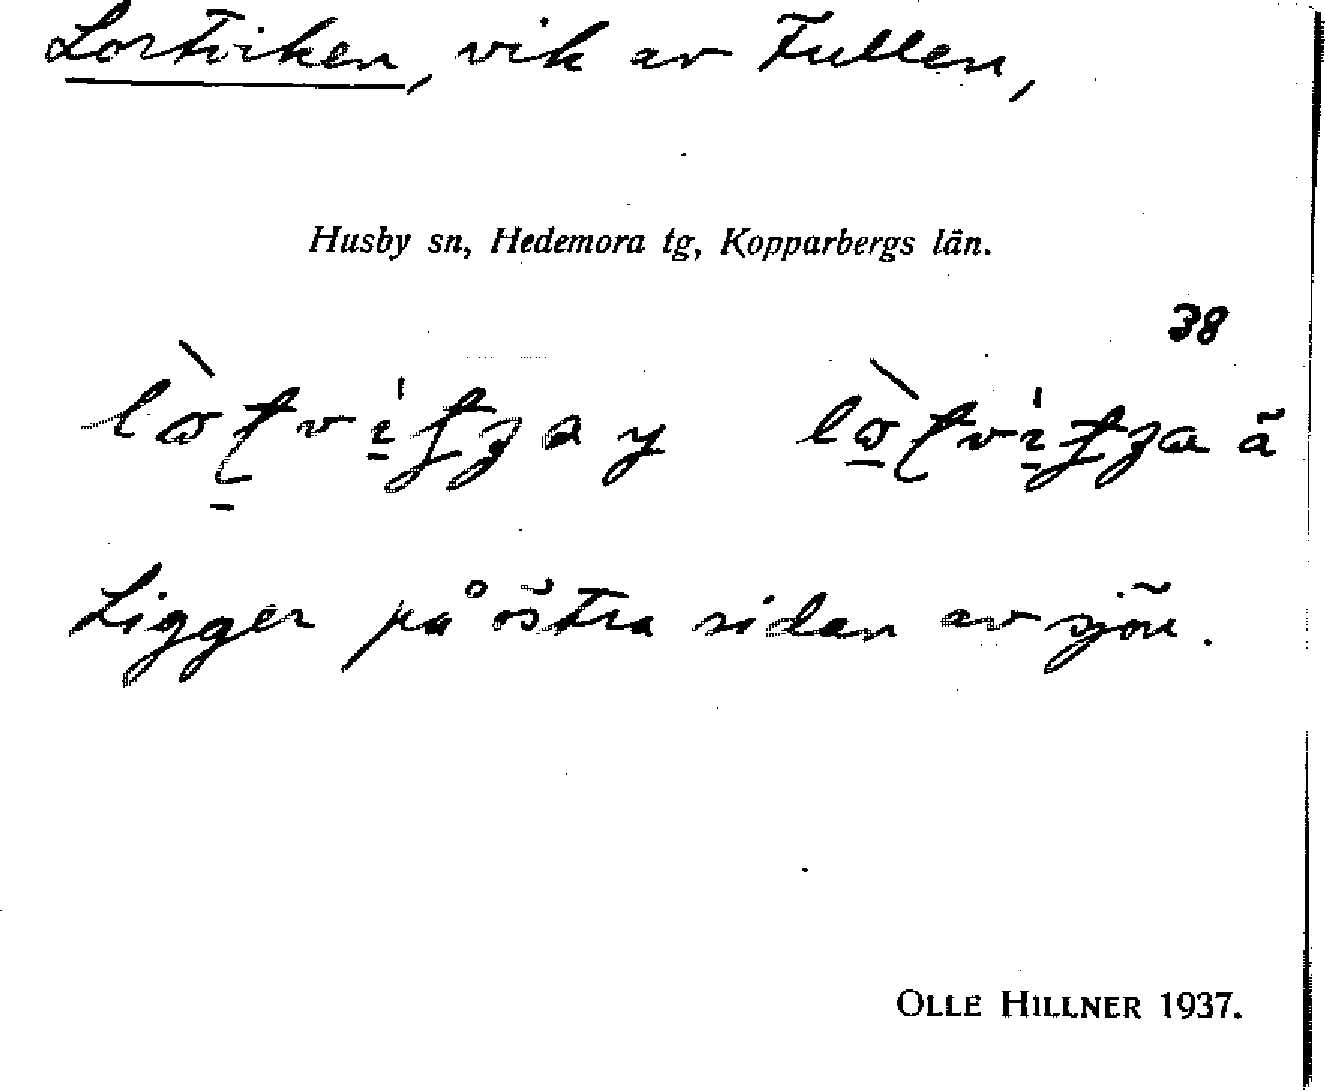 Lortviken, vik av Fullen,
Husby sn, Hedemora tg, Kopparbergs län.
38
Ligger på östra sidan av sjön.
OLLE HILLNER 1937.